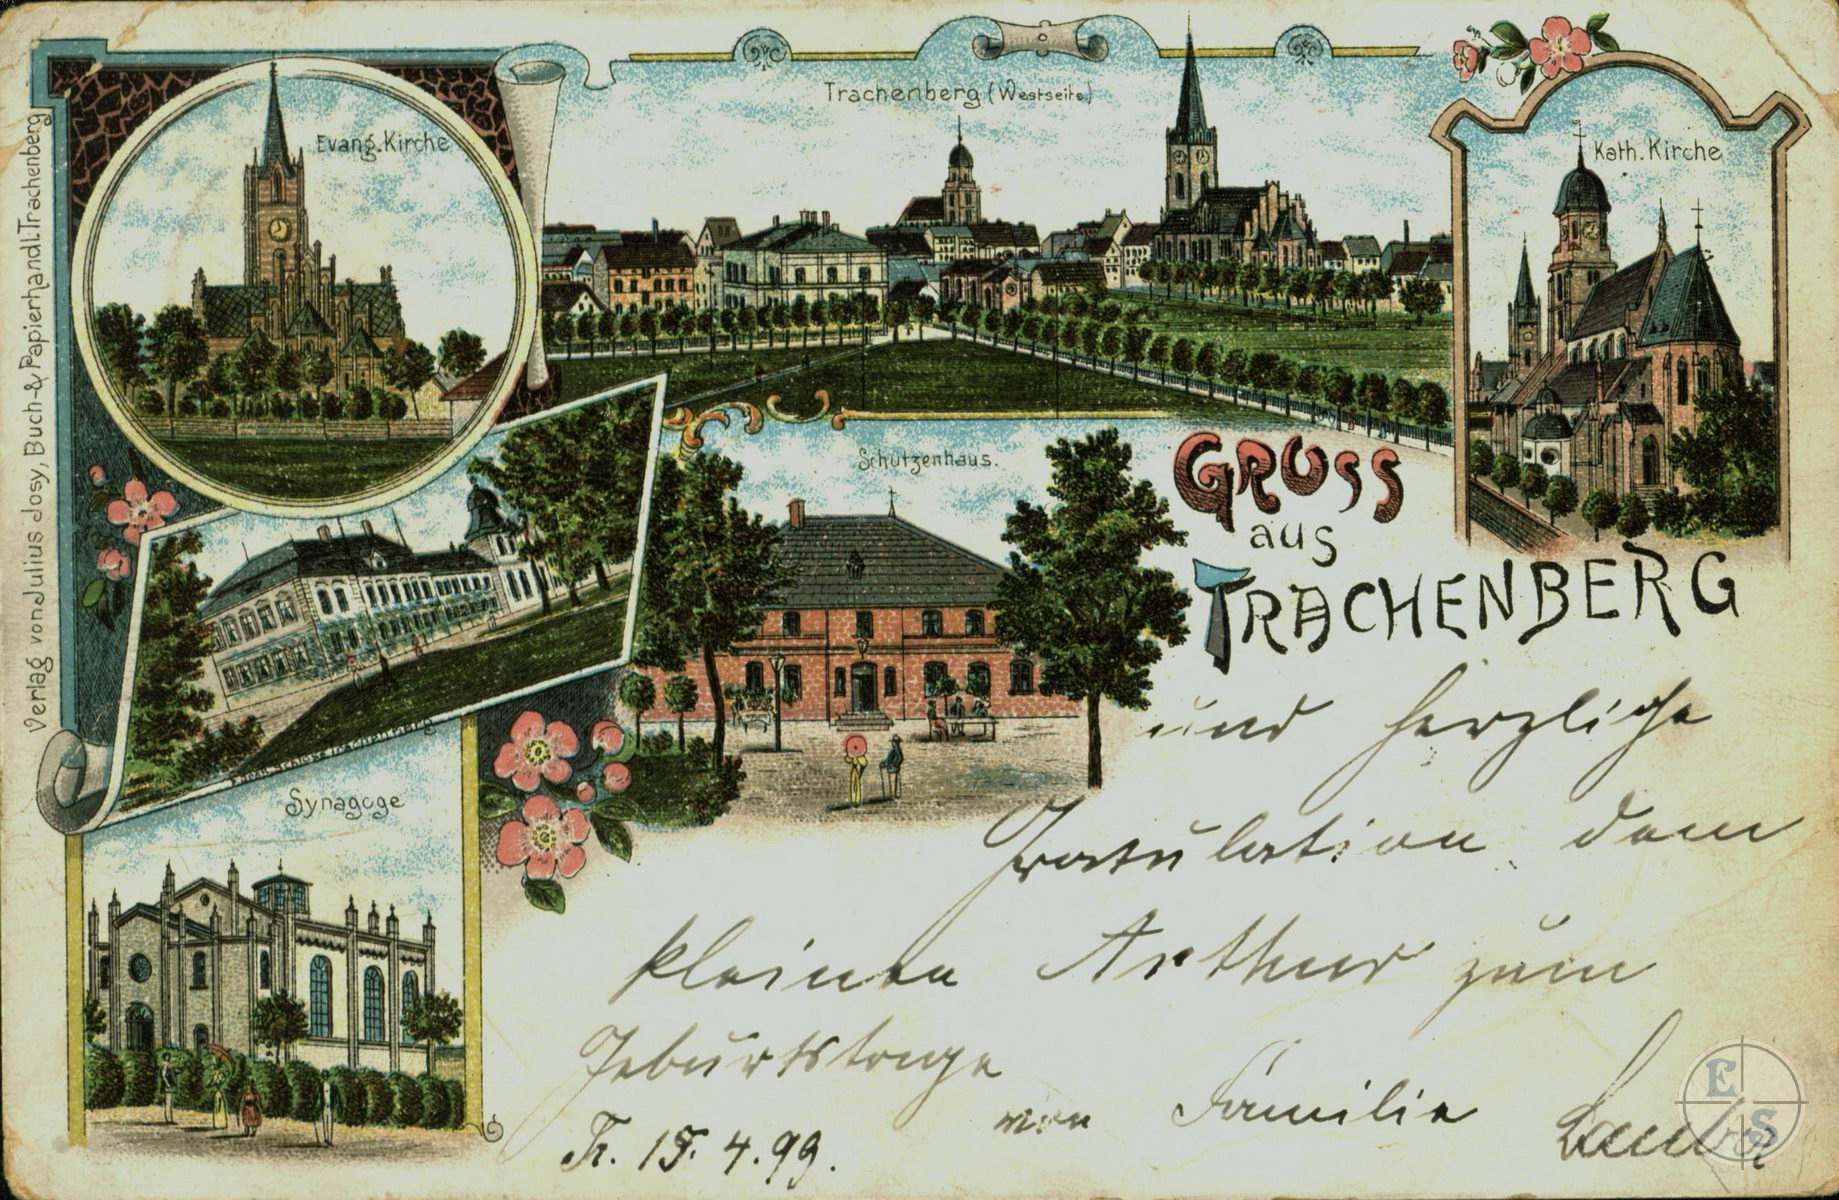 Verlag von Julius Josy, Buch- & Papierhandl. Trachenberg
Evang. Kirche
Trachenberg (Westseite)
Kath. Kirche
Schützenhaus.
Synagoge
GRUSS
aus
TRACHENBERG
und herzliche
Gratulation dem
kleinen Arthur zum
Geburtstage
von Familie
Tr. 15. 4. 99.
E S